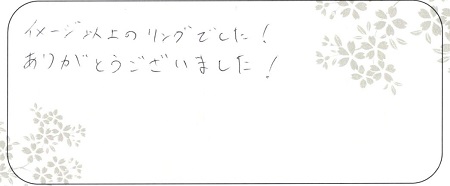 イメージ以上のリングでした!
ありがとうございました!